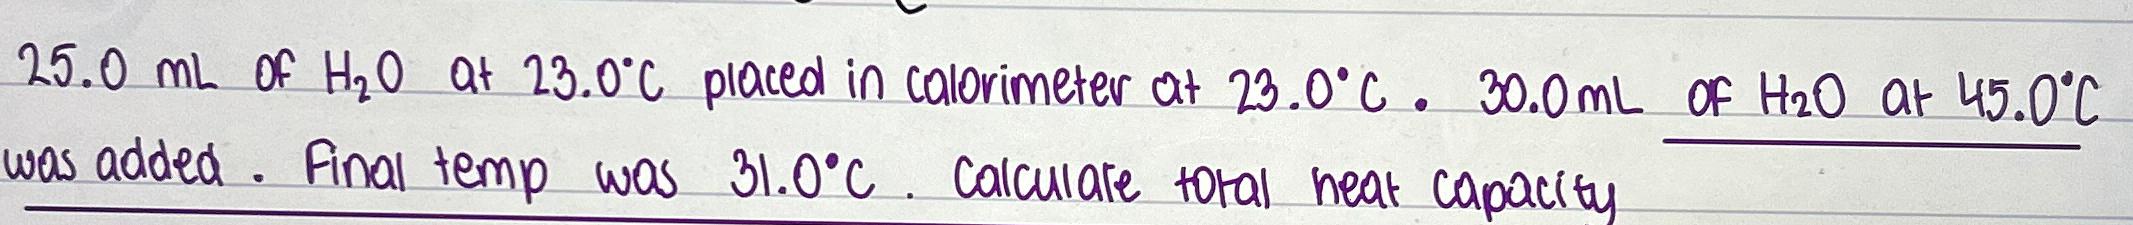 25.0 mL of H₂O at 23.0°C placed in calorimeter at 23.0°C. 30.0 mL of H₂O at 45.0°C
was added. Final temp was 31.0°C. Calculate total heat capacity